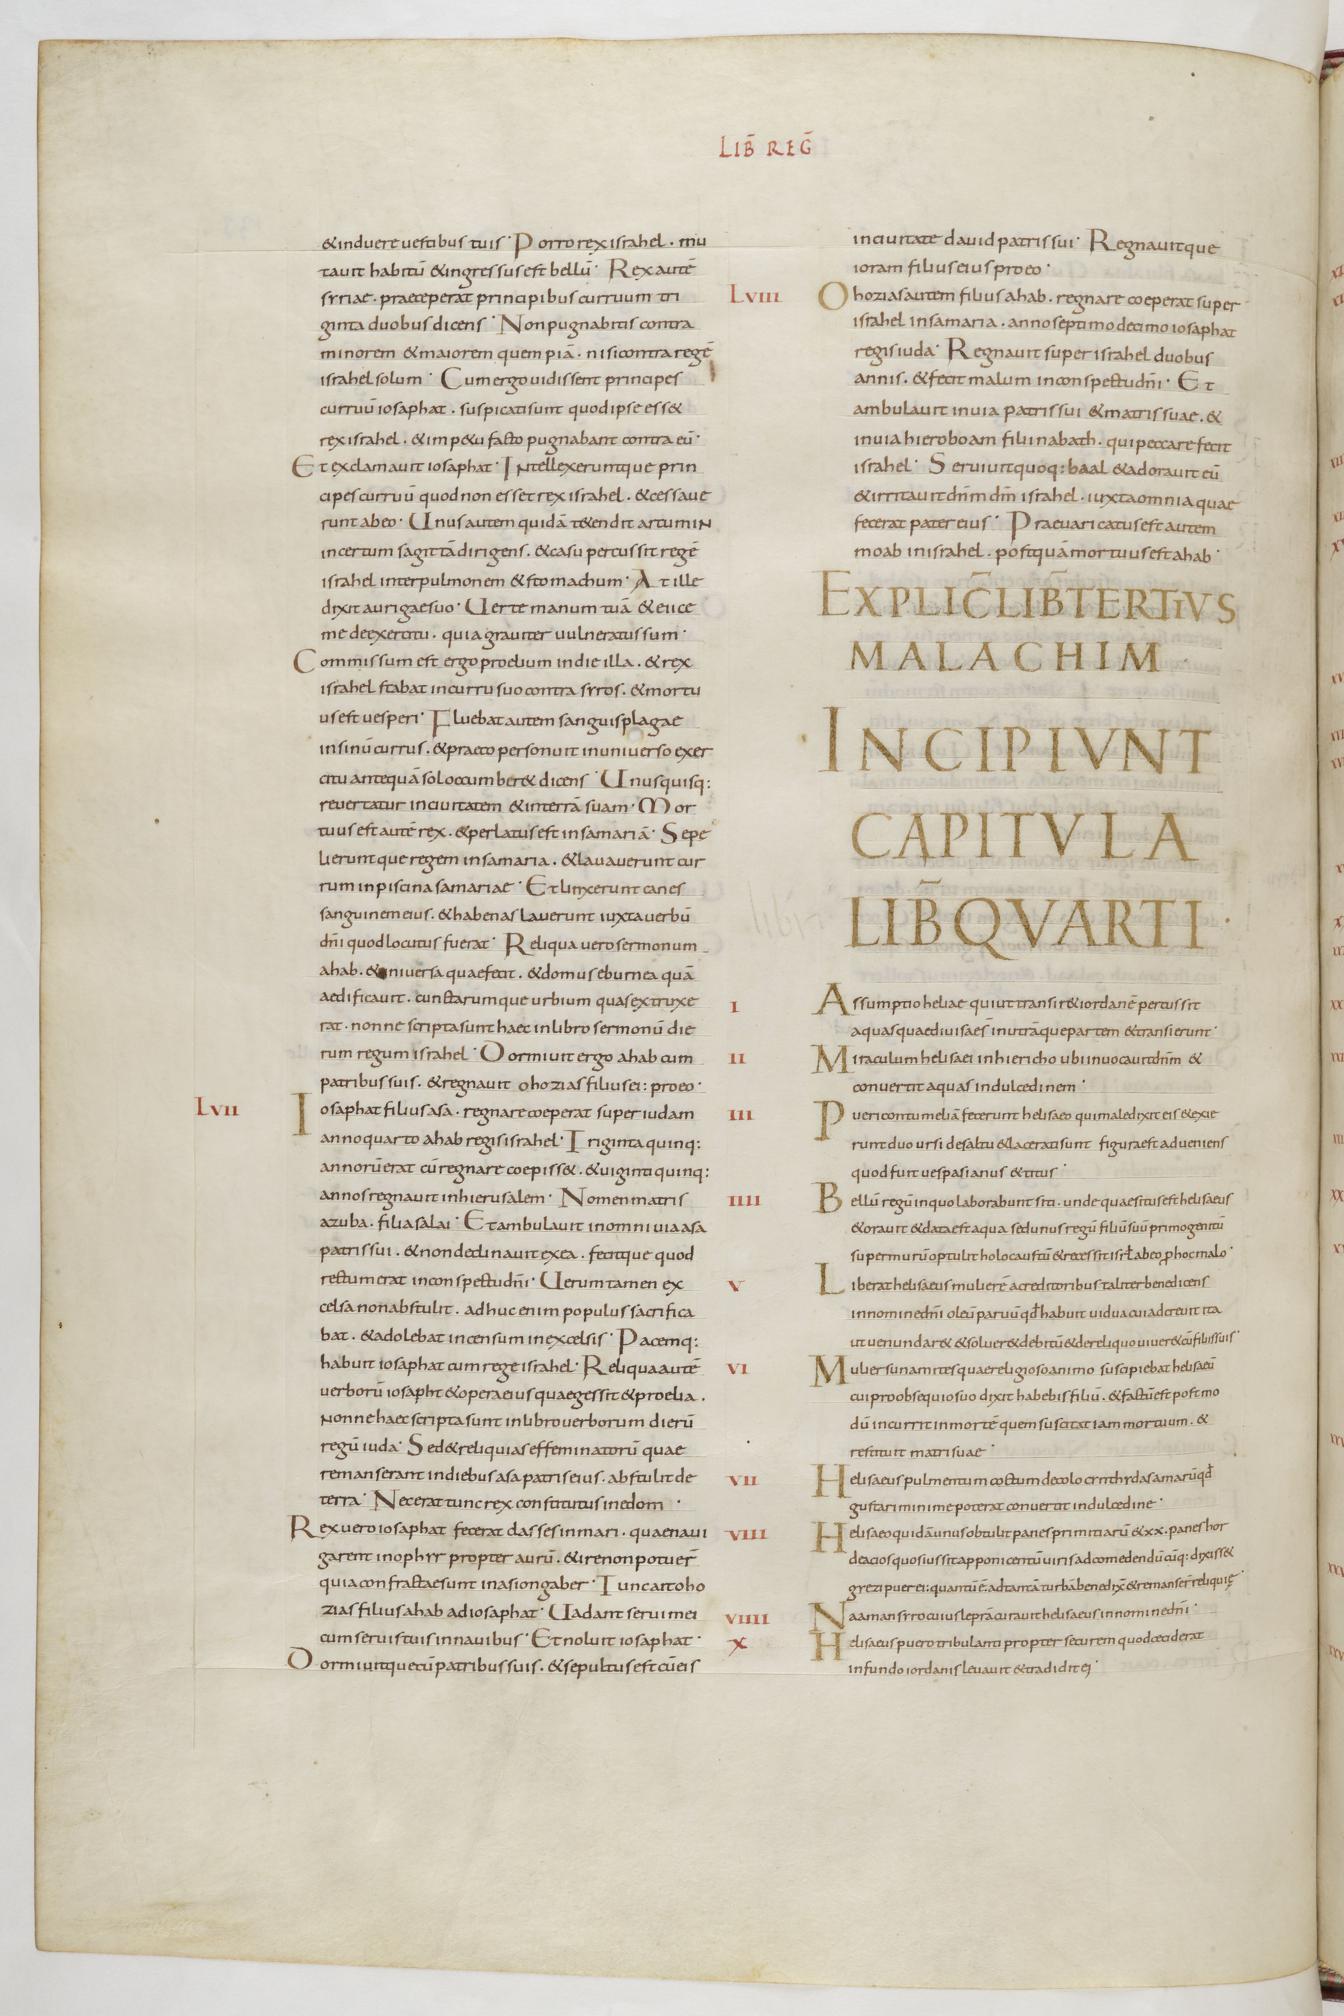 LIB̄ REḠ
&induere uestibus tuis· Porro rex israhel· mu
tauit habitū &ingressus est bellū· Rex autē
syriae· praeceperat principibus curruum tri
ginta duobus dicens· Non pugnabitis contra
minorem &maiorem quempiā· nisi contra regē
israhel solum· Cum ergo uidissent principes
curruū iosaphat· suspicati sunt quod ipse ess&
rex israhel· &imp&u facto pugnabant contra eū·
Et exclamauit iosaphat· Intellexeruntque prin
cipes curruū quod non esset rex israhel· &cessaue
runt ab eo· Unus autem quidā t&endit arcum in
incertum sagittā dirigens· &casu percussit regē
israhel inter pulmonem &stomachum· At ille
dixit aurigae suo· Uerte manum tuā &eiice
me de exercitu· quia grauiter uulneratus sum·
Commissum est ergo proelium in die illa· &rex
israhel stabat in curru suo contra syros· &mortu
us est uesperi· Fluebat autem sanguis plagae
in sinū currus· &praeco personuit in uniuerso exer
citu antequā sol occumber& dicens· Unusquisq:
reuertatur in ciuitatem &in terrā suam· Mor
tuus est autē rex· &perlatus est in samariā· Sepe
lieruntque regem in samaria· &lauauerunt cur
rum in piscina samariae· Et linxerunt canes
sanguinem eius· &habenas lauerunt iuxta uerbū
dn̄i quod locutus fuerat· Reliqua uero sermonum
ahab· &uniuersa quae fecit· &domus eburnea quā
aedificauit· cunctarumque urbium quas extruxe
rat· nonne scripta sunt haec in libro sermonū die
rum regum israhel· Dormiuit ergo ahab cum
patribus suis· &regnauit ohozias filius ei: pro eo·
LVII Iosaphat filius asa· regnare coeperat super iudam
anno quarto ahab regis israhel· Triginta quinq:
annorū erat cū regnare coepiss&· &uiginti quinq:
annos regnauit in hierusalem· Nomen matris
azuba· filia salai· Et ambulauit in omni uia asa
patris sui· &non declinauit ex ea· fecitque quod
rectum erat in conspectu dn̄i· Uerum tamen ex
celsa non abstulit· adhuc enim populus sacrifica
bat· &adolebat incensum in excelsis· Pacemq:
habuit iosaphat cum rege israhel· Reliqua autē
uerborū iosapht &opera eius quae gessit &proelia·
nonne haec scripta sunt in libro uerborum dierū
regū iuda· Sed &reliquias effeminatorū quae
remanserant in diebus asa patris eius· abstulit de
terra· Nec erat tunc rex constitutus in edom·
Rex uero iosaphat fecerat classes in mari· quae naui
garent in ophyr propter aurū· &ire non potuer̄
quia confractae sunt in asiongaber· Tunc ait oho
zias filius ahab ad iosaphat· Uadant serui mei
cum seruis tuis in nauibus· Et noluit iosaphat·
Dormiuitque cū patribus suis· &sepultus est cū eis
in ciuitate dauid patris sui· Regnauitque
ioram filius eius pro eo·
LVIII Ohozias autem filius ahab· regnare coeperat super
israhel in samaria· anno septimo decimo iosaphat
regis iuda· Regnauit super israhel duobus
annis· &fecit malum in conspectu dn̄i· Et
ambulauit in uia patris sui &matris suae· &
in uia hieroboam filii nabath· qui peccare fecit
israhel· Seruiuit quoq: baal &adorauit eū
&irritauit dn̄m dm̄ israhel· iuxta omnia quae
fecerat pater eius· Praeuaricatus est autem
moab in israhel· postquā mortuus est ahab·
EXPLIC̄ LIB̄ TERTIVS
MALACHIM·
INCIPIVNT
CAPITVLA
LIB̄ QVARTI·
I Assumptio heliae qui ut transir& iordanē percussit
aquas quae diuisae s̄ in utrāque partem &transierunt·
II Miraculum helisaei in hiericho ubi inuocauit dn̄m &
conuertit aquas in dulcedinem·
III Pueri contumeliā fecerunt helisaeo qui maledixit eis &exie
runt duo ursi de saltu &lacerati sunt figura est adueniens
quod fuit uespasianus &titus·
IIII Bellū regū in quo laborabunt siti· unde quaesitus est helisaeus
&orauit &data est aqua sed unus regū filiū suū primogenitū
super murū optulit holocaustū &recessit isrl̄ ab eo p̱ hoc malo·
V Liberat helisaeus mulierē a creditoribus taliter benedicens
in nomine dn̄i oleū paruū qd̄ habuit uidua cui adcreuit ita
ut uenundar& &solueret debitū &de reliquo uiuer& cū filiis suis·
VI Mulier sunamites quae religioso animo suscipiebat helisaeū
cui pro obsequio suo dixit habebis filiū· &factū est post mo
dū incurrit in mortē quem suscitat iam mortuum· &
restituit matri suae·
VII Helisaeus pulmentum coctum de colocynthydas amarū qd̄
gustari minime poterat conuertit in dulcedine·
VIII Helisaeo quidā unus obtulit panes primitiarū &xx· panes hor
deacios quos iussit apponi centū uiris ad comedendū cūq: dixiss&
grezi puer ei: quantū ē ad tantā turbā benedix̄ &remanser̄ reliquię·
VIIII Naaman syro cuius leprā curauit helisaeus in nomine dn̄i·
X Helisaeus puero tribulanti propter securem quod ceciderat
in fundo iordanis leuauit &tradidit ei·